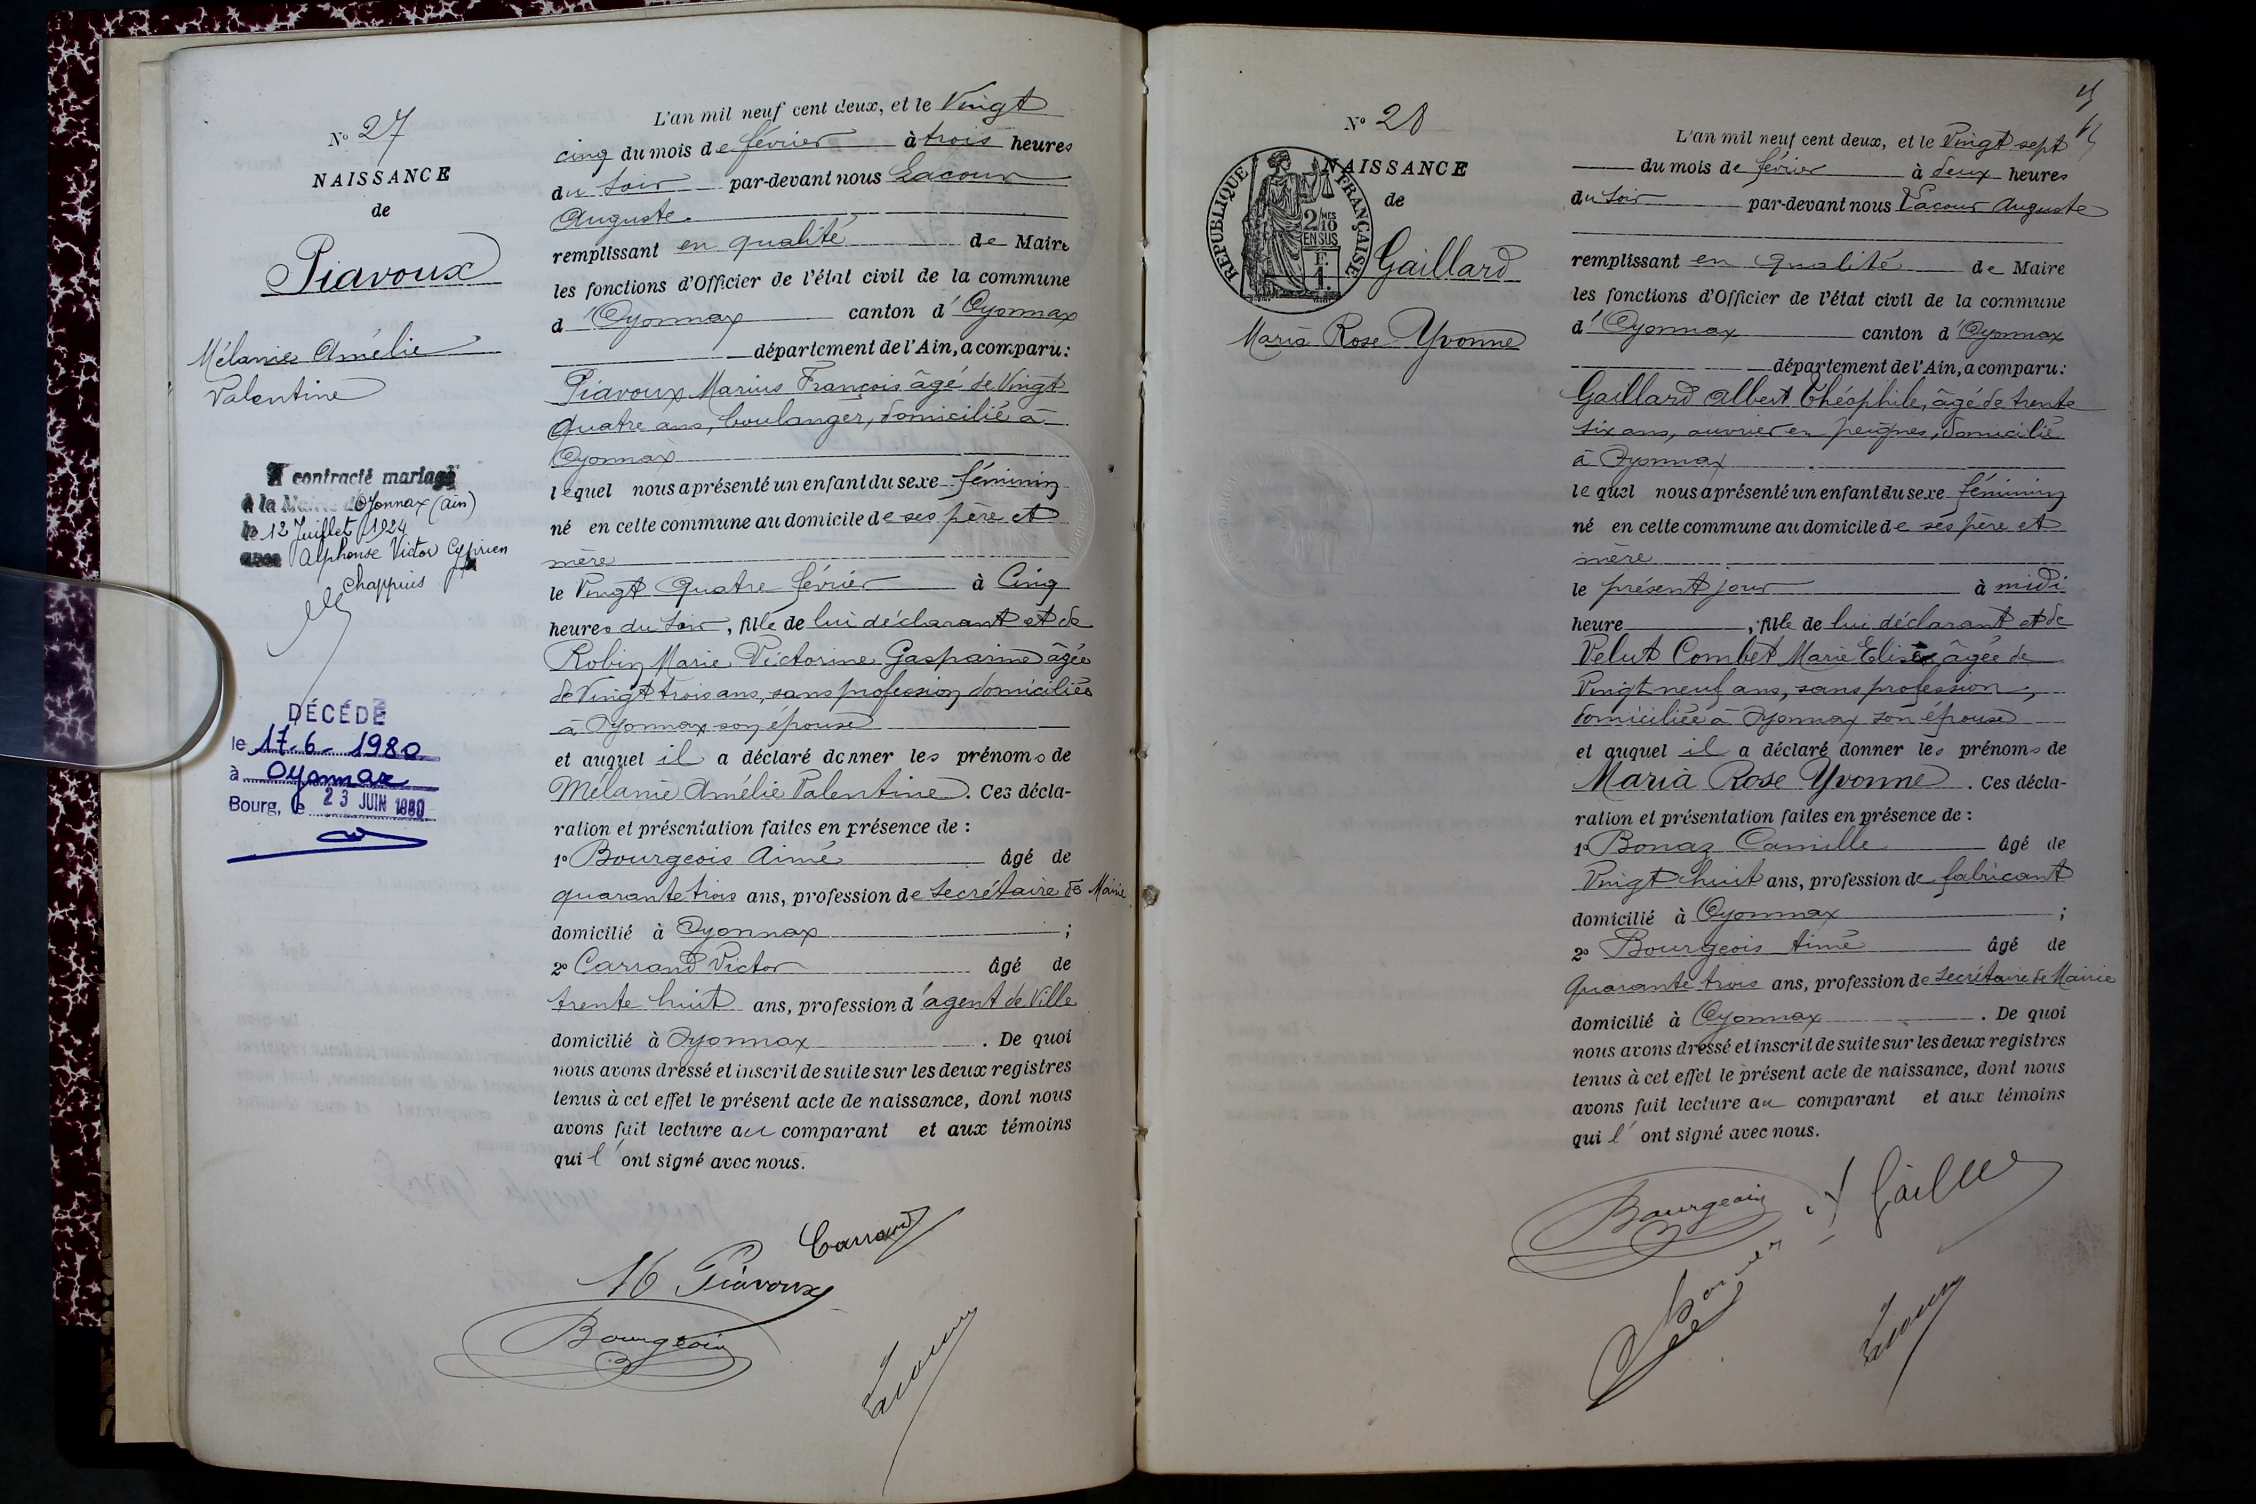 N° 27
NAISSANCE
de
Piavoux
Mélanie Amélie
Valentine
A contracté mariage
à la Mairie d'Oyonnax (Ain)
le 12 Juillet 1924
avec Alphonse Victor Cyprien
Chappuis
DÉCÉDÉ
le 17-6-1980
à Oyonnax
Bourg, le 23 JUIN 1980
L'an mil neuf cent deux, et le Vingt
cinq du mois de février à trois heures
du soir par-devant nous Lacour
Auguste
remplissant en qualité de Maire
les fonctions d'Officier de l'état civil de la commune
d'Oyonnax canton d'Oyonnax
département de l'Ain, a comparu:
Piavoux Marius François âgé de Vingt
quatre ans, boulanger, domicilié à
Oyonnax
lequel nous a présenté un enfant du sexe féminin
né en cette commune au domicile de ses père et
mère
le Vingt quatre février à Cinq
heures du soir, fille de lui déclarant et de
Robin Marie Victorine Gasparine âgée
de Vingt trois ans, sans profession domiciliée
à Oyonnax son épouse
et auquel il a déclaré donner les prénoms de
Mélanie Amélie Valentine. Ces décla-
ration et présentation faites en présence de :
1° Bourgeois Aimé âgé de
quarante trois ans, profession de secrétaire de Mairie
domicilié à Oyonnax ;
2° Carrand Victor âgé de
trente huit ans, profession d'agent de Ville
domicilié à Oyonnax . De quoi
nous avons dressé et inscrit de suite sur les deux registres
tenus à cet effet le présent acte de naissance, dont nous
avons fait lecture au comparant et aux témoins
qui l'ont signé avec nous.
Carrand
M Piavoux
Bourgeois
Lacour
N° 28
NAISSANCE
de
RÉPUBLIQUE FRANÇAISE
2/10 MES
EN SUS
F.
1.
Gaillard
Maria Rose Yvonne
L'an mil neuf cent deux, et le Vingt sept
du mois de février à deux heures
du soir par-devant nous Lacour Auguste
remplissant en qualité de Maire
les fonctions d'Officier de l'état civil de la commune
d'Oyonnax canton d'Oyonnax
département de l'Ain, a comparu:
Gaillard Albert Théophile, âgé de trente
six ans, ouvrier en peignes, domicilié
à Oyonnax
lequel nous a présenté un enfant du sexe féminin
né en cette commune au domicile de ses père et
mère
le présent jour à midi
heure , fille de lui déclarant et de
Velut Combet Marie Elise âgée de
Vingt neuf ans, sans profession,
domiciliée à Oyonnax son épouse
et auquel il a déclaré donner les prénoms de
Maria Rose Yvonne . Ces décla-
ration et présentation faites en présence de :
1° Bonaz Camille âgé de
Vingt huit ans, profession de fabricant
domicilié à Oyonnax ;
2° Bourgeois Aimé âgé de
Quarante trois ans, profession de secrétaire de Mairie
domicilié à Oyonnax . De quoi
nous avons dressé et inscrit de suite sur les deux registres
tenus à cet effet le présent acte de naissance, dont nous
avons fait lecture au comparant et aux témoins
qui l'ont signé avec nous.
Bourgeois
Lacour